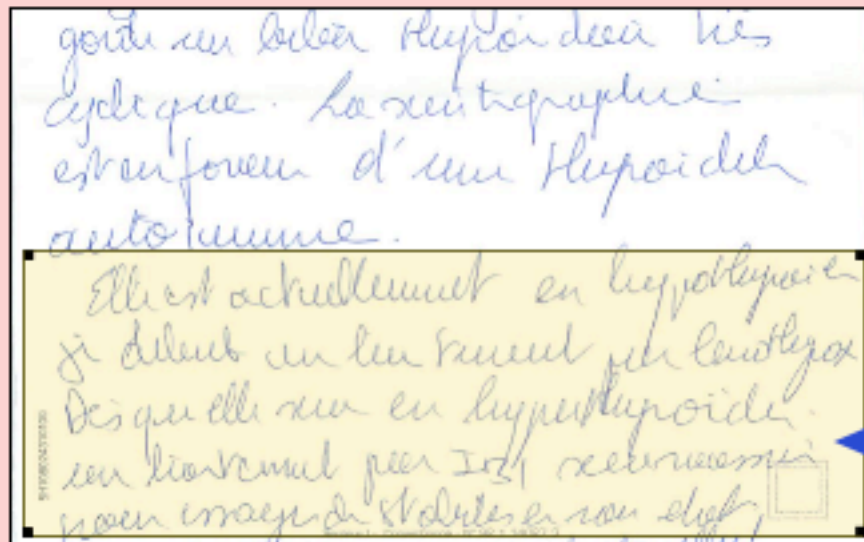 un bilan thyroïdien très
cyclique. La scintigraphie
est en faveur d'une thyroïdite
autoimmune.
Elle est actuellement en hypothyroïdie
je débute un traitement par Levothyrox
Dès qu'elle sera en hyperthyroïdie
un traitement par I131 sera nécessaire
pour essayer de stabiliser son